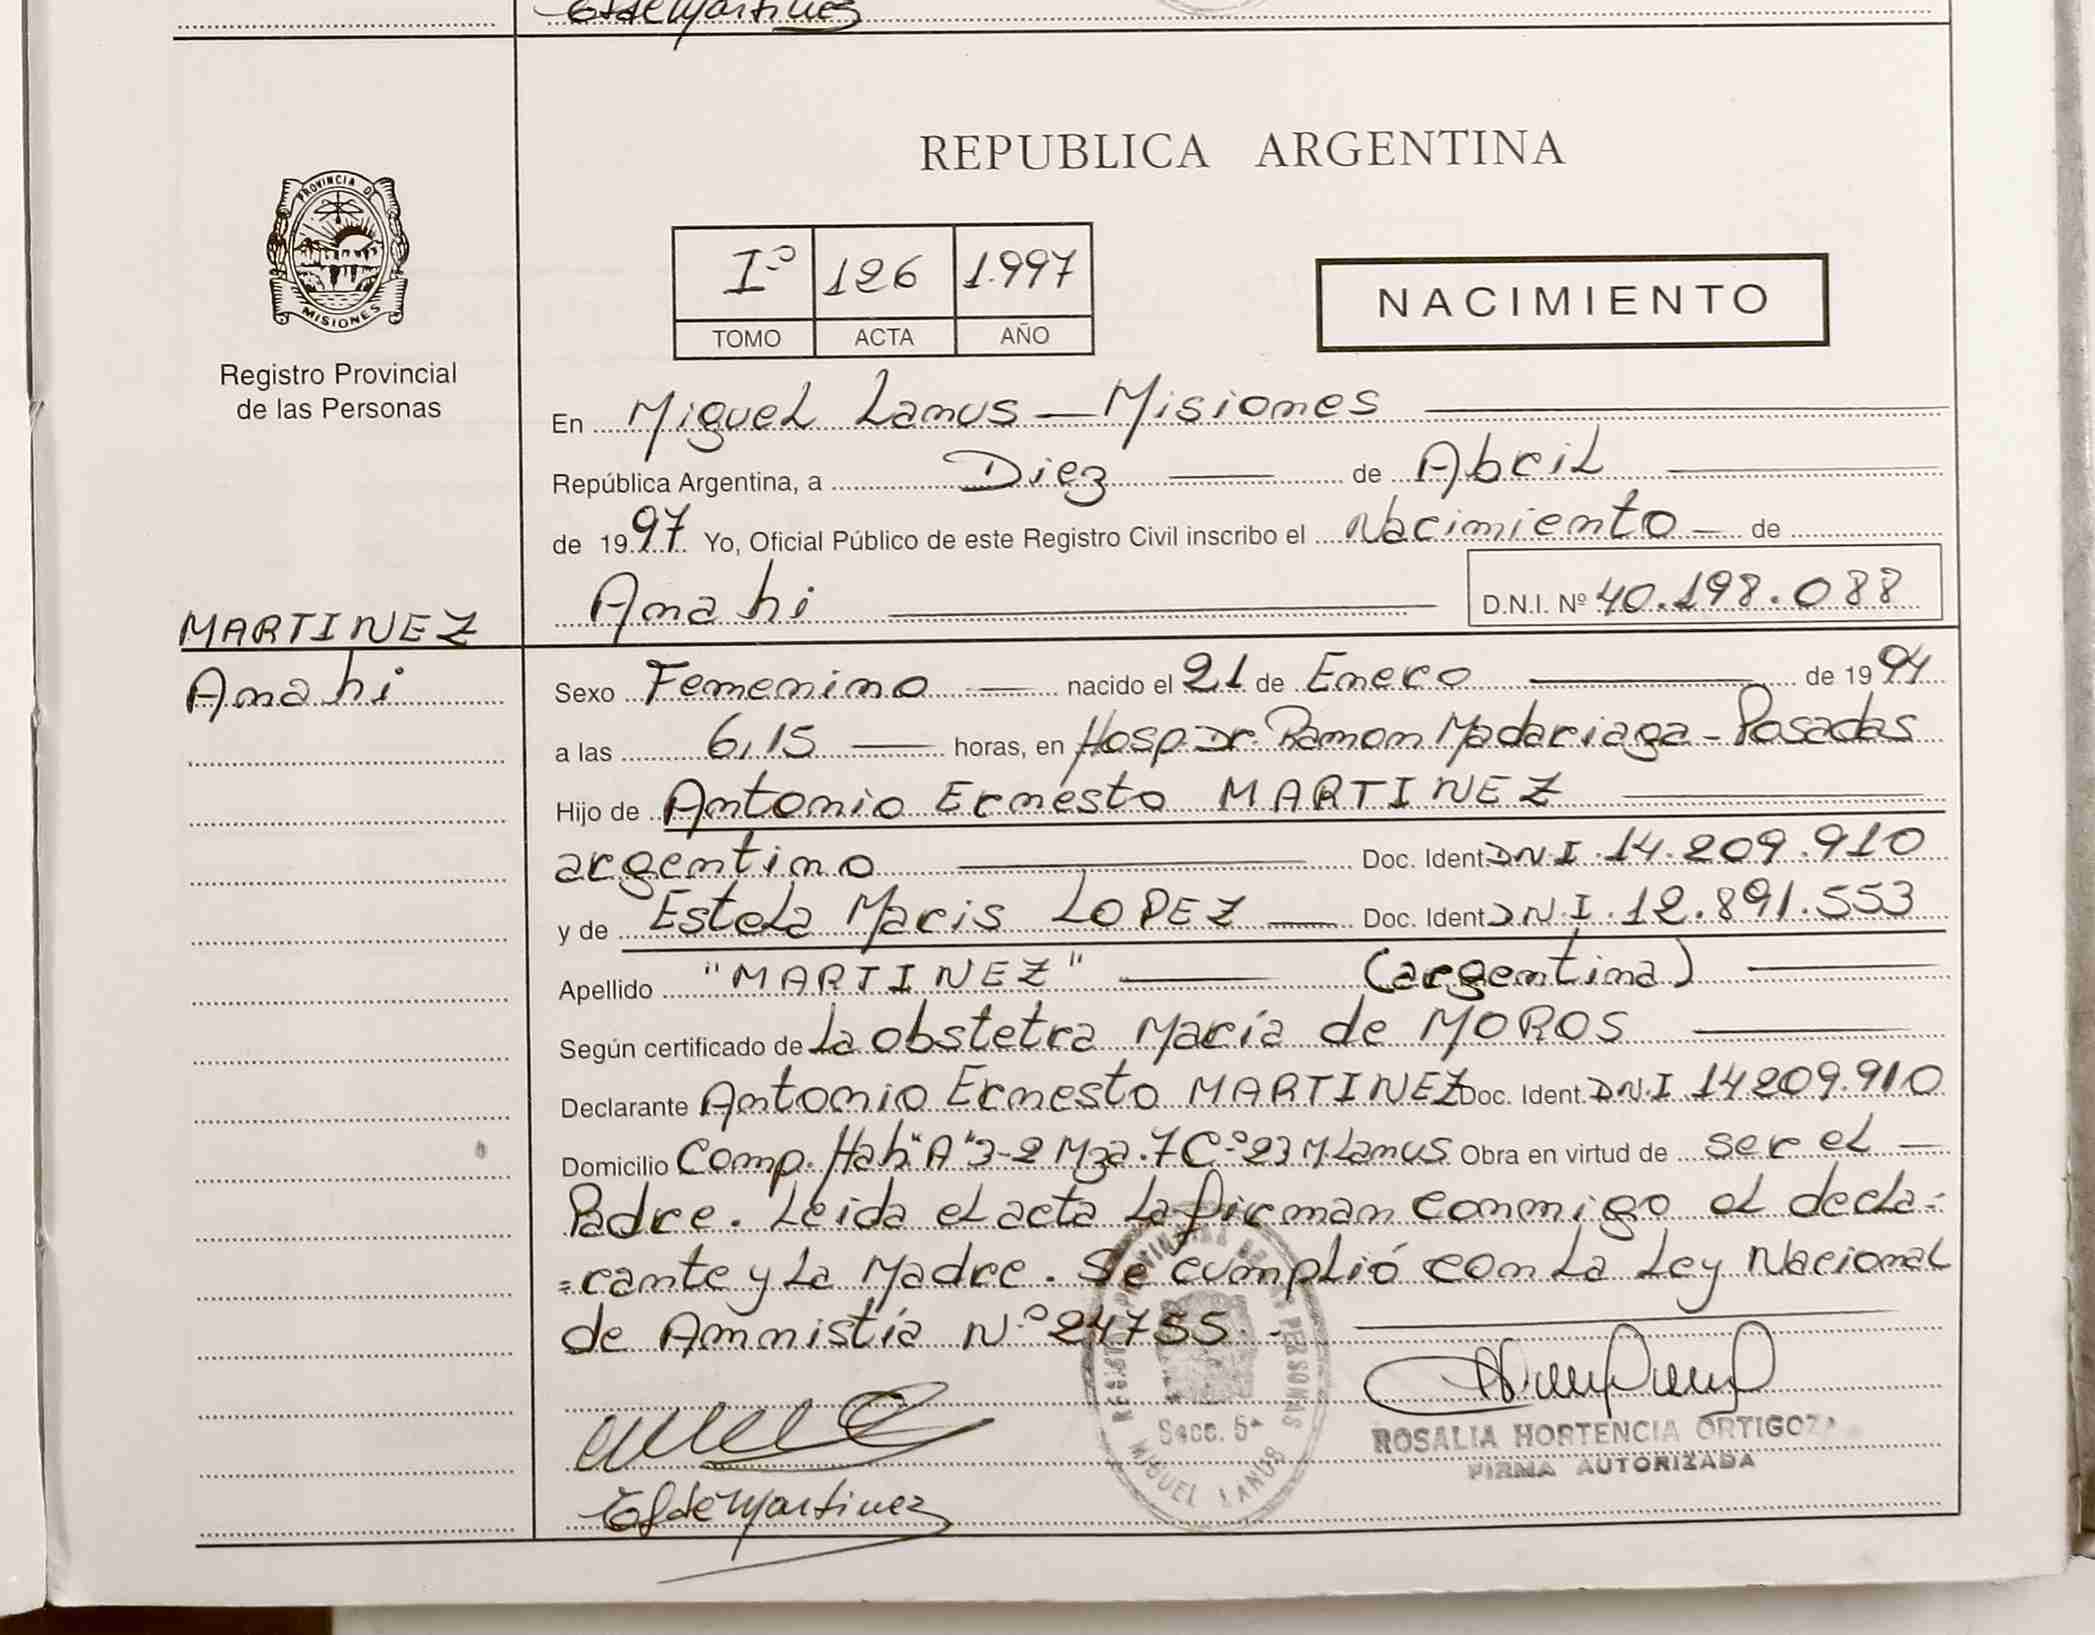 REPUBLICA ARGENTINA
PROVINCIA DE
MISIONES
Registro Provincial
de las Personas
Iº 126 1.997
TOMO ACTA AÑO
NACIMIENTO
En Miguel Lanus — Misiones
República Argentina, a Diez de Abril
de 1997 Yo, Oficial Público de este Registro Civil inscribo el Nacimiento de
Anahi D.N.I. Nº 40.198.088
MARTINEZ
Anahi
Sexo Femenino nacido el 21 de Enero de 1994
a las 6,15 horas, en Hosp. Dr. Ramon Madariaga - Posadas
Hijo de Antonio Ernesto MARTINEZ
argentino Doc. Ident. D.N.I. 14.209.910
y de Estela Maris LOPEZ Doc. Ident. D.N.I. 12.891.553
Apellido "MARTINEZ" (argentina)
Según certificado de La obstetra María de MOROS
Declarante Antonio Ernesto MARTINEZ Doc. Ident. D.N.I 14209.910
Domicilio Comp. Hab "A" 3-2 Mza. 7 Cº 23 M. Lanus Obra en virtud de ser el
Padre. Leida el acta la firman conmigo el decla=
=rante y La Madre. Se cumplió con La Ley Nacional
de Amnistía N.º 24755.
REGISTRO PROVINCIAL DE LAS PERSONAS
Secc. 5ª
MIGUEL LANUS
ROSALIA HORTENCIA ORTIGOZA
FIRMA AUTORIZADA
E L de Martinez